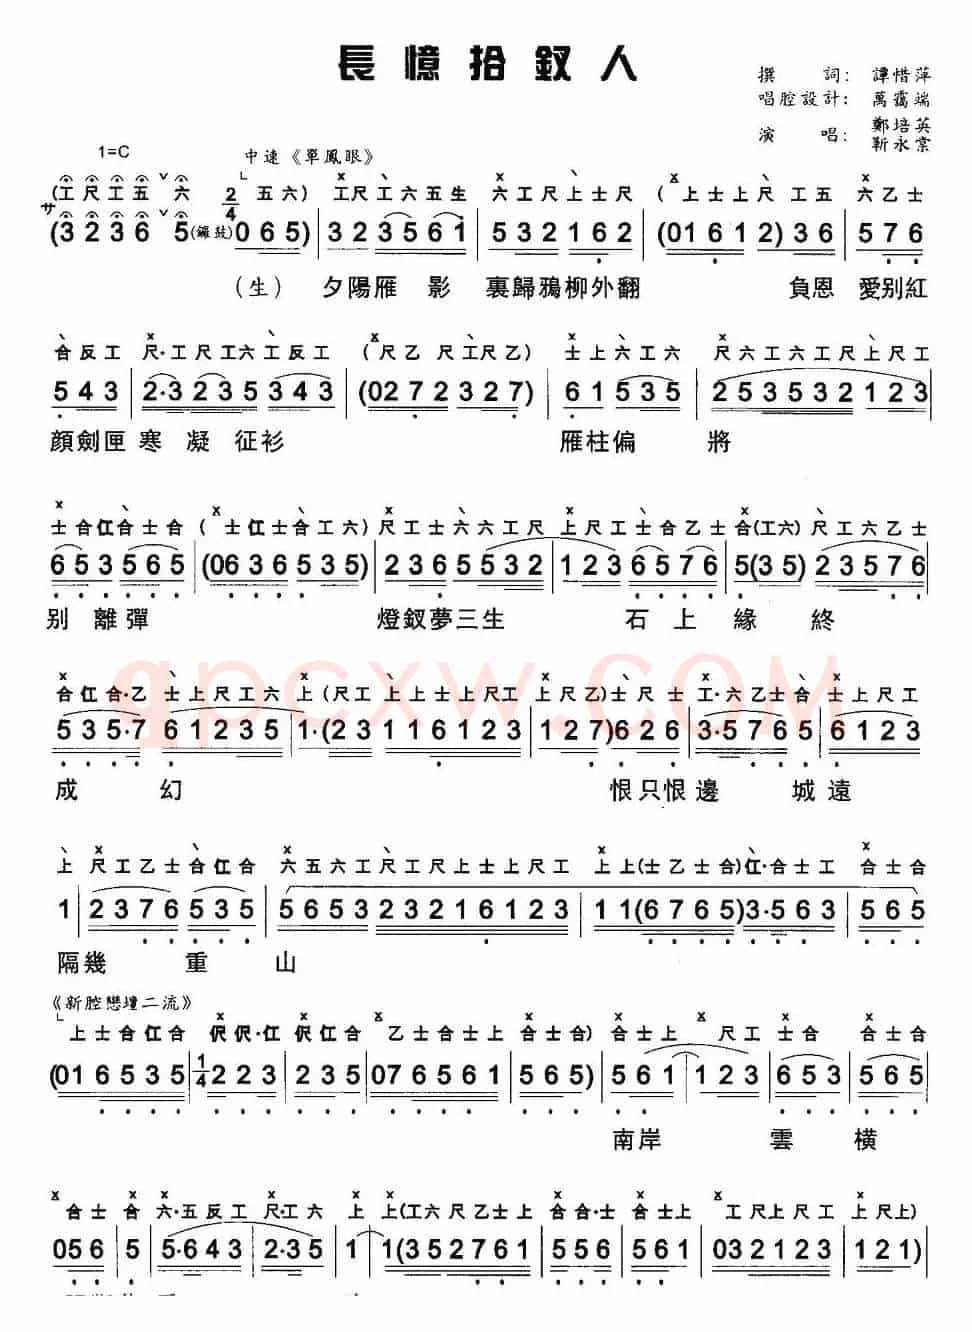 長憶拾釵人
撰 詞：譚惜萍
唱腔設計：萬靄端
演 唱：鄭培英
靳永棠
1=C 中速《單鳳眼》
(工尺工五六 五六) 工尺工六五生 六工尺上士尺 (上士上尺工五 六乙士
サ(3 2 3 6 5(鑼鼓) 2/4 0 6 5) | 3 2 3 5 6 1 | 5 3 2 1 6 2 | (0 1 6 1 2) 3 6 | 5 7 6
(生) 夕陽雁 影 裏歸鴉柳外翻 負恩 愛别紅
合反工 尺·工尺工六工反工 (尺乙 尺工尺乙) 士上六工六 尺六工六工尺上尺工
5 4 3 | 2·3 2 3 5 3 4 3 | (0 2 7 2 3 2 7) | 6 1 5 3 5 | 2 5 3 5 3 2 1 2 3
顔劍匣 寒 凝 征衫 雁柱偏 將
士合仜合士合 (士仜士合工六) 尺工士六六工尺 上尺工士合乙士 合(工六) 尺工六乙士
6 5 3 5 6 5 | (0 6 3 6 5 3 5) | 2 3 6 5 5 3 2 | 1 2 3 6 5 7 6 | 5(3 5) 2 3 5 7 6
别 離彈 燈釵夢三生 石上緣 終
qpcxw.com
合仜合·乙 士上尺工六 上(尺工 上上士上尺工 上尺乙)士尺士 工·六乙士合 士上尺工
5 3 5·7 6 1 2 3 5 | 1·(2 3 1 1 6 1 2 3 | 1 2 7) 6 2 6 | 3·5 7 6 5 | 6 1 2 3
成 幻 恨只恨邊 城遠
上 尺工乙士合仜合 六五六工尺工尺上士上尺工 上上(士乙士合)仜·合士工 合士合
1 | 2 3 7 6 5 3 5 | 5 6 5 3 2 3 2 1 6 1 2 3 | 1 1(6 7 6 5)3·5 6 3 | 5 6 5
隔幾 重 山
《新腔戀壇二流》
上士合仜合 伬伬·仜 伬仜合 乙士合士上 合士合) 合士上 尺工 士合 合士合
(0 1 6 5 3 5 | 1/4 2 2 3 | 2 3 5 | 0 7 6 5 6 1 | 5 6 5) | 5 6 1 | 1 2 3 | 6 5 3 | 5 6 5
南岸 雲 橫
合士 合 六·五反工 尺·工六 上 上(工六尺乙士上 合合·士 合士上 工尺上尺工 上尺上)
0 5 6 | 5 | 5·6 4 3 | 2·3 5 | 1 | 1(3 5 2 7 6 1 | 5 5 6 | 5 6 1 | 0 3 2 1 2 3 | 1 2 1)